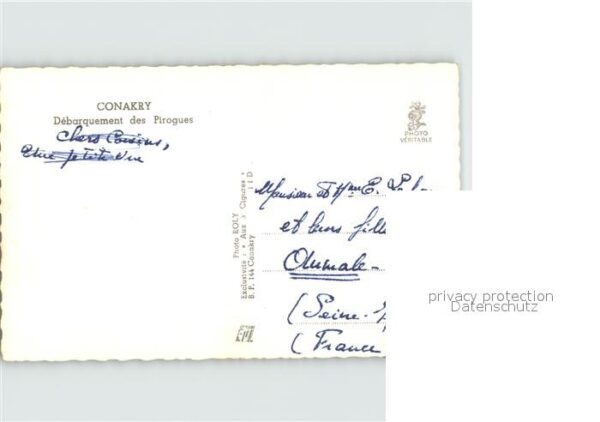 CONAKRY
Débarquement des Pirogues
Chers Cousins,
PHOTO
VÉRITABLE
Photo ROLY
Exclusivité : « Aux 3 Cigures »
B. P. 144 Conakry 1 D
Monsieur et Mme E.
et leurs fill
Aumale -
(Seine-
(France
privacy protection
Datenschutz